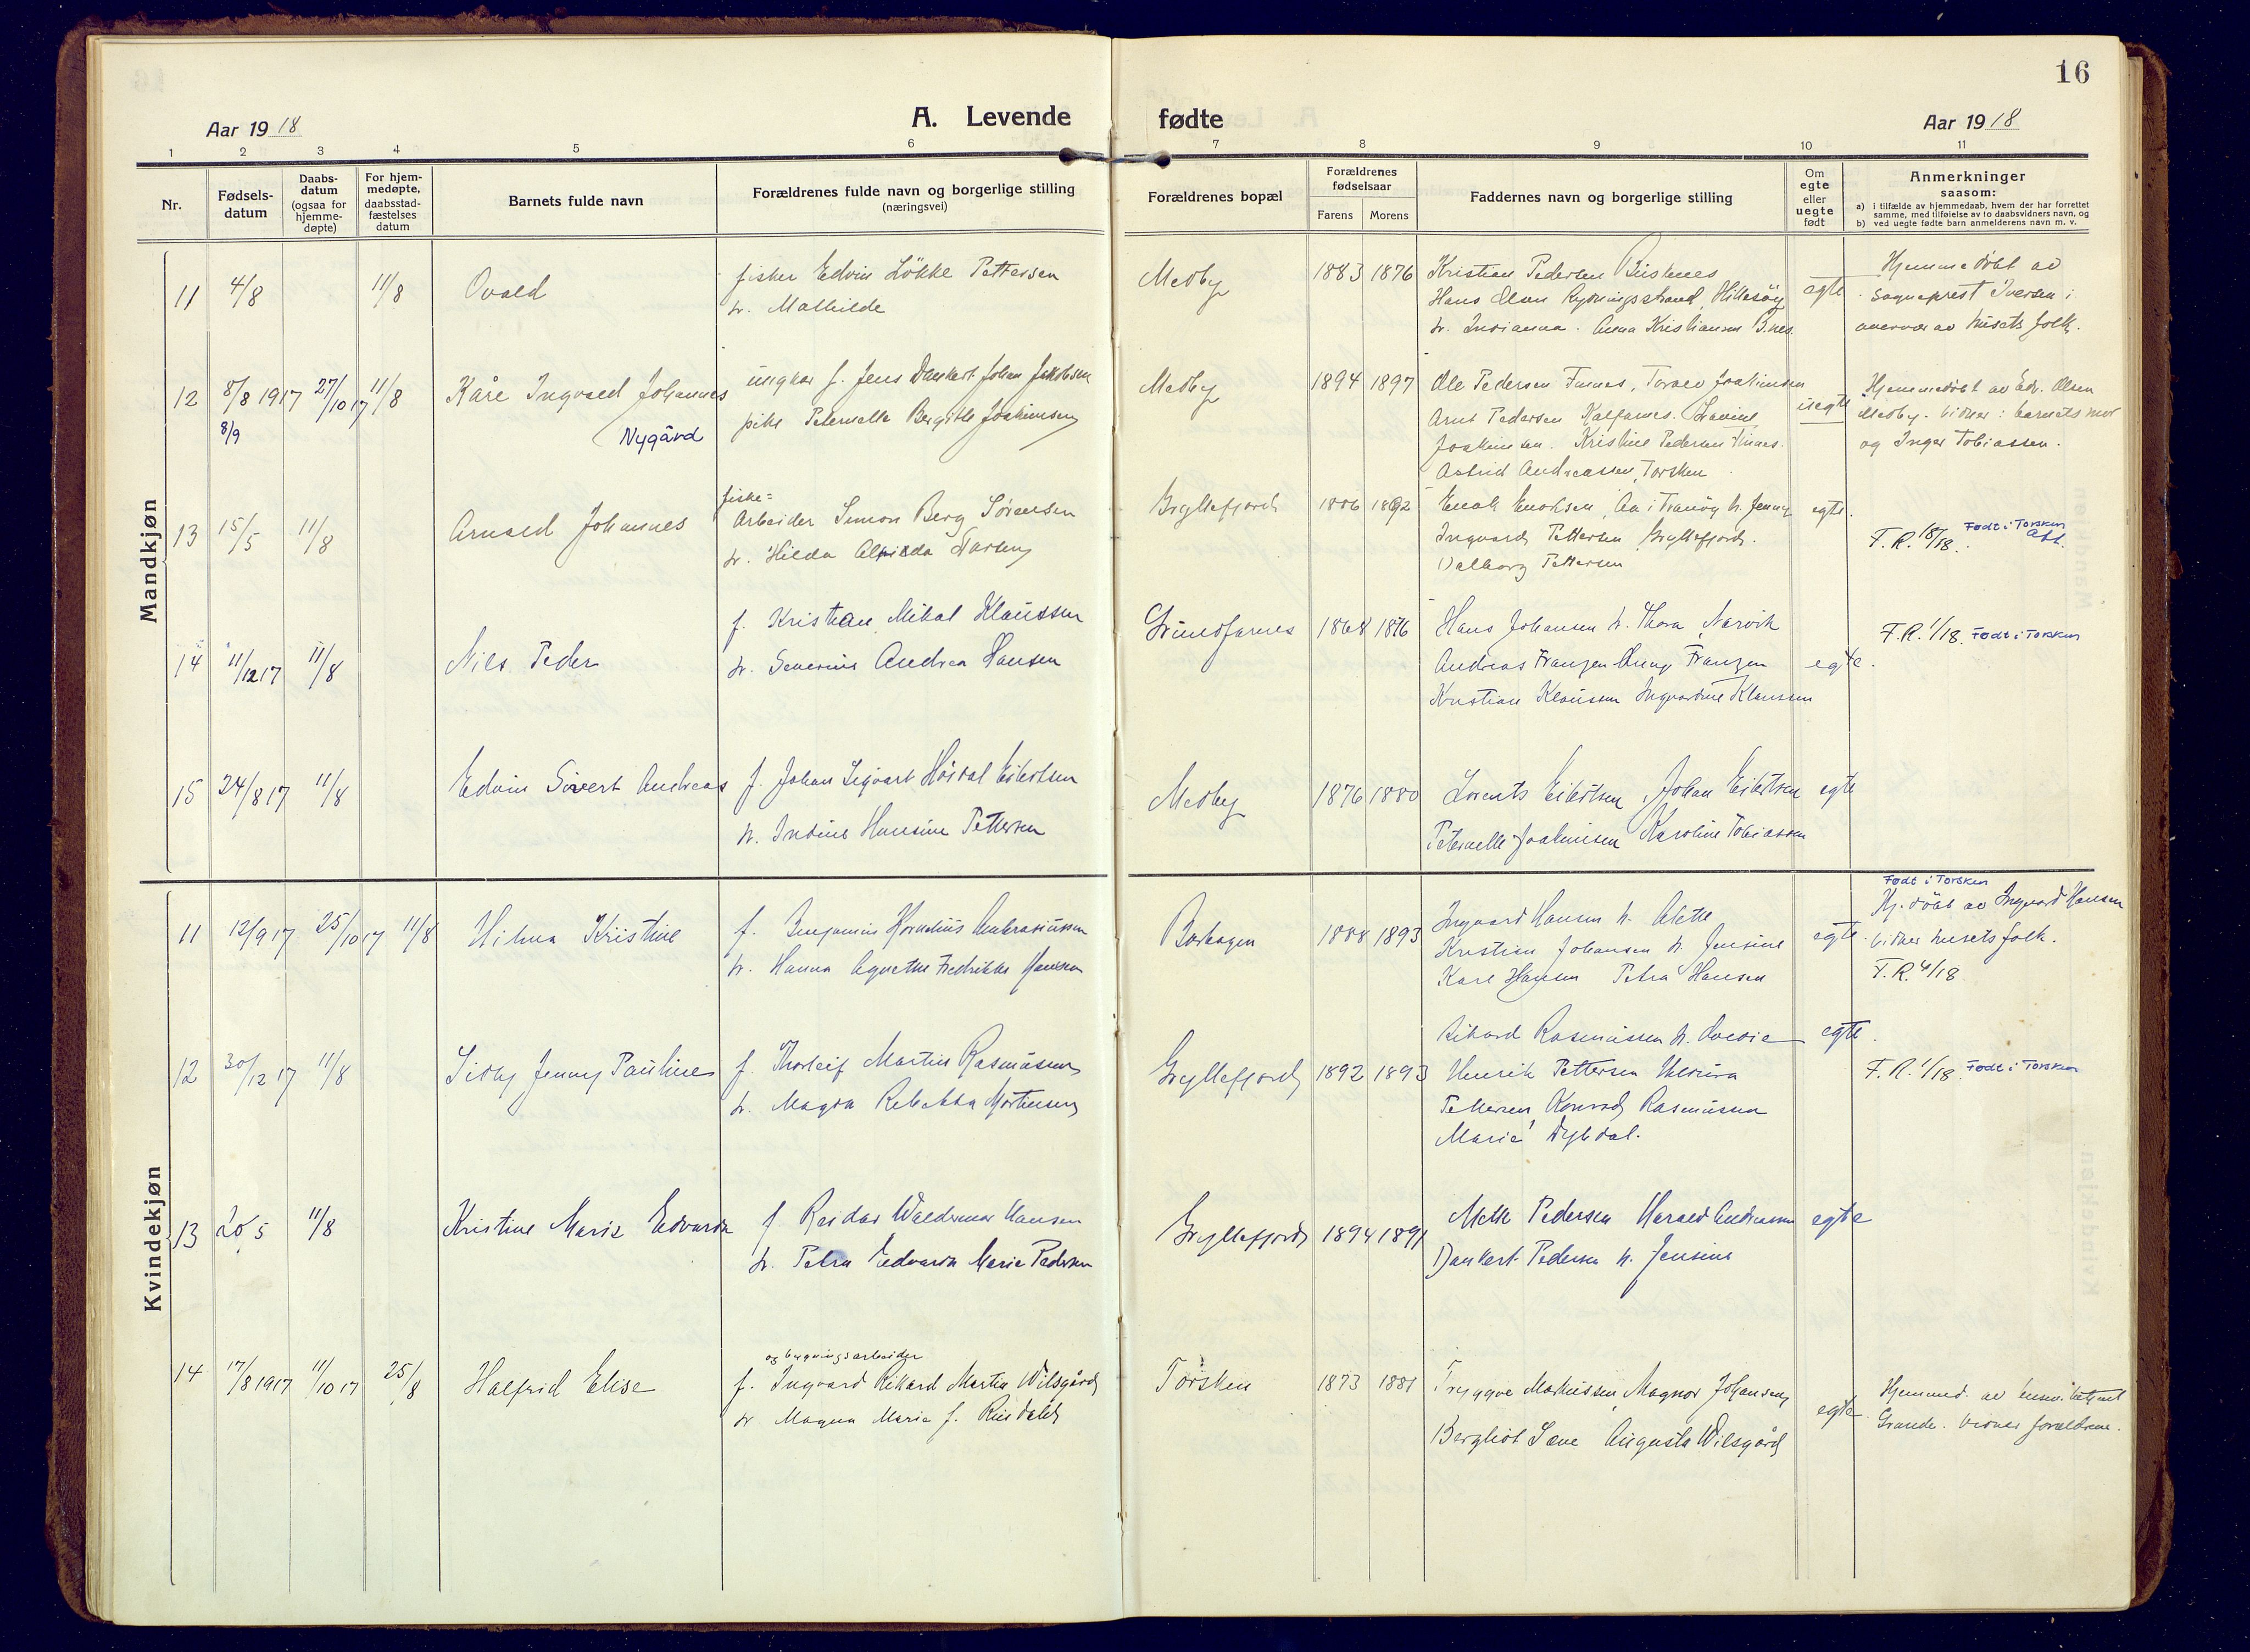 16
Aar 1918
A. Levende
fødte
Aar 1918
1 2 3 4 5 6 7 8 9 10 11
Nr.
Fødsels-
datum
Daabs-
datum
(ogsaa for
hjemme-
døpte)
For hjem-
medøpte,
daabsstad-
fæstelses
datum
Barnets fulde navn
Forældrenes fulde navn og borgerlige stilling
(næringsvei)
Forældrenes bopæl
Forældrenes
fødselsaar
Farens Morens
Faddernes navn og borgerlige stilling
Om
egte
eller
uegte
født
Anmerkninger
saasom:
a) i tilfælde av hjemmedaab, hvem der har forrettet
samme, med tilføielse av to daabsvidners navn, og
b) ved uegte fødte barn anmelderens navn m. v.
Mandkjøn
11 4/8 11/8 Ovald
fisker Edvin Løkke Pettersen
h. Mathilde
Medby 1883 1876
Kristian Pedersen
Hans Olsen Hillesøy
h. Anna Kristiansen
egte
Hjemmedöbt av
Sogneprest Iversen i
overvær av husets folk.
12 8/8 1917 27/10 17 11/8 Kåre Ingvald Johannes
8/9
Nygård
ungkar f. Jens Dankert Johan Jakobsen
pike Peternelle Bergitte Joakimsen
Medby 1894 1897
Ole Pedersen Finnes, Joakimsen
Arnt Pedersen Kalfarnes.
Joakimsen. Kristine Pedersen Finnes.
Astrid Andreassen, Torsken
uegte
Hjemmedöbt av Edv. Olsen
Medby. Vidner: barnets mor
og Inger Tobiassen.
13 15/5 11/8 Arnald Johannes
fiske-
Arbeider Simon Berg Sörensen
h. Hilda Alvilda Larsen
Gryllefjord 1886 1892
Enok Enoksen, Tranöy h. Jenny
Ingvard Pettersen Gryllefjord.
Valborg Pettersen
egte.
F.R. 18/18. Født i Torsken
14 11/12 17 11/8 Nils Peder
f. Kristian Mikal Klaussen
h. Severine Andrea Hansen
Grundfarnes 1868 1876
Hans Johansen h. Thora, Narvik
Andreas Franzen Franzen
Kristian Klaussen Ingvardine Klaussen
egte.
F.R. 1/18. Født i Torsken
15 24/8 17 11/8 Edvin Sivert Andreas
f. Johan Sigvart Eibertsen
h. Indine Hansine Pettersen
Medby 1876 1880
Lorents Eibertsen, Johan Eibertsen
Peternelle Joakimsen Karoline Tobiassen
egte
Kvindekjøn
11 12/9 17 25/10 17 11/8 Hilma Kristine
f. Benjamin Kornelius Ambrosiussen
h. Hanna Agnethe Fredrikke Hansen
1888 1893
Ingvard Hansen h. Alette
Kristian Johansen h. Jensine
Karl Hansen Petra Hansen
egte.
Født i Torsken
Hj. döbt av Ingvard Hansen
Vidner husets folk.
F.R. 4/18
12 30/12 17 11/8 Sidny Jenny Pauline
f. Thorleif Martin Rasmussen
h. Magda Rebekka Mortensen
Gryllefjord 1892 1893
Rikard Rasmussen h. Lovise
Henrik Pettersen
Pettersen, Konrad Rasmussen
Marie Dybdal.
egte.
F.R. 1/18. Født i Torsken
13 5 11/8 Kristine Marie Edvarda
f Reidar Waldemar Hansen
h. Petra Edvarda Marie Pedersen
Gryllefjord 1894 1891
Mette Pedersen Harald Andreassen
Dankert Pedersen h. Jensine
egte
14 17/8 1917 11/10 17 25/8 Halfrid Elise
og bergningsarbeider
f. Ingvard Rikard Martin Wilsgård
h Magna Marie f. Rindahl
Torsken 1873 1881
Tryggve Markussen, Magnor Johansen
Bergliot Lane Augusta Wilsgård
egte.
Hjemmed. av
Grande. Vidner forældrene.